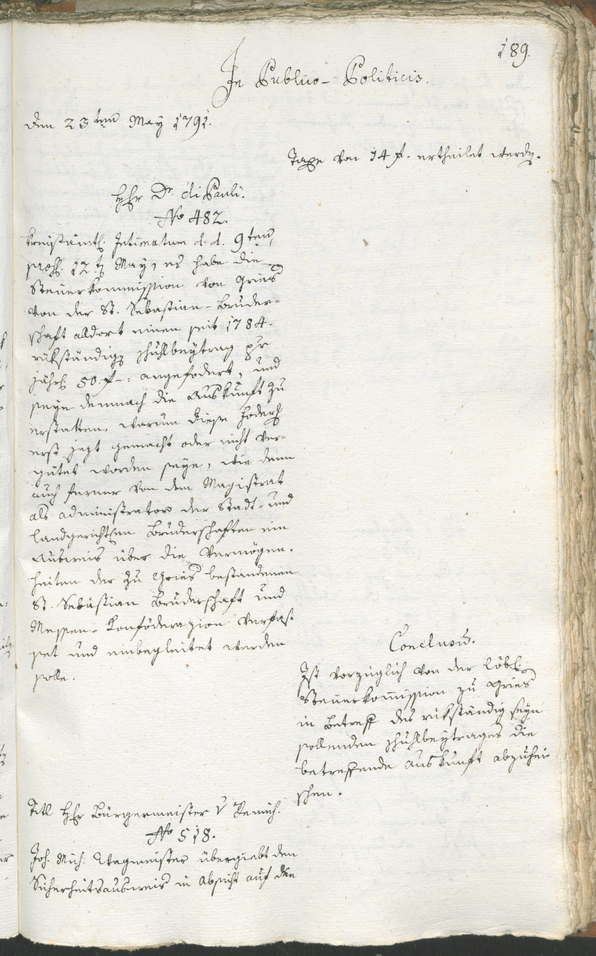 189.
In Publico-Politicis.
den 23ten May 1791.
Taxe von 14 f. ertheilet werde.
Hr Dr. di Pauli.
No 482.
kreisämtl. Intimatum d. d. 9ten,
praes. 12ten May, es habe die
Steuerkommission von Gries
von der St. Sebastian-Bruder-
schaft alldort einen seit 1784.
rükständigen Schulbeytrag pr
jährl. 50 f. angefodert, und
seye demnach die Auskunft zu
erstatten, warum diese Foder
erst jezt gemacht oder nicht ver-
gütet worden seye, wie dann
auch ferner von dem Magistrat
als Administrator der Stadt- und
Landgerichtlen Bruderschaften ein
Ausweis über die Vermögen-
heiten der zu Gries bestandenen
St. Sebastian Bruderschaft und
Messen-Konföderazion verfas-
set und einbegleitet werden
solle.
Conclusum.
Ist vorzüglich von der Löbl.
Steuerkommission zu Gries
in Betreff des rükständig seyn
sollenden Schulbeytrages die
betreffende Auskunft abzuhei-
schen.
Titl Hr Bürgermeister v Remich.
No 518.
Joh. Mich. Wagmeister übergiebt den
Sicherheitsausweis in Absicht auf den